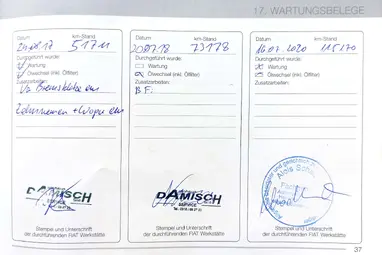 17. WARTUNGSBELEGE
Datum km-Stand
51711
Durchgeführt wurde:
Wartung
Ölwechsel (inkl. Ölfilter)
Zusatzarbeiten:
Zahnriemen + Wapu ern
DAMISCH
SERVICE
Stempel und Unterschrift
der durchführenden FIAT Werkstätte
Datum km-Stand
73178
Durchgeführt wurde:
Wartung
Ölwechsel (inkl. Ölfilter)
Zusatzarbeiten:
B.F.
DAMISCH
SERVICE
Stempel und Unterschrift
der durchführenden FIAT Werkstätte
Datum km-Stand
16.07.2020 115170
Durchgeführt wurde:
Wartung
Ölwechsel (inkl. Ölfilter)
Zusatzarbeiten:
Stempel und Unterschrift
der durchführenden FIAT Werkstätte
37